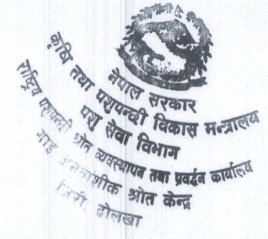 नेपाल सरकार
कृषि तथा पशुपन्छी विकास मन्त्रालय
पशु सेवा विभाग
राष्ट्रिय पशुपन्छी श्रोत व्यवस्थापन तथा प्रवर्द्धन कार्यालय
गाई आनुवंशिक श्रोत केन्द्र
जिरी, दोलखा